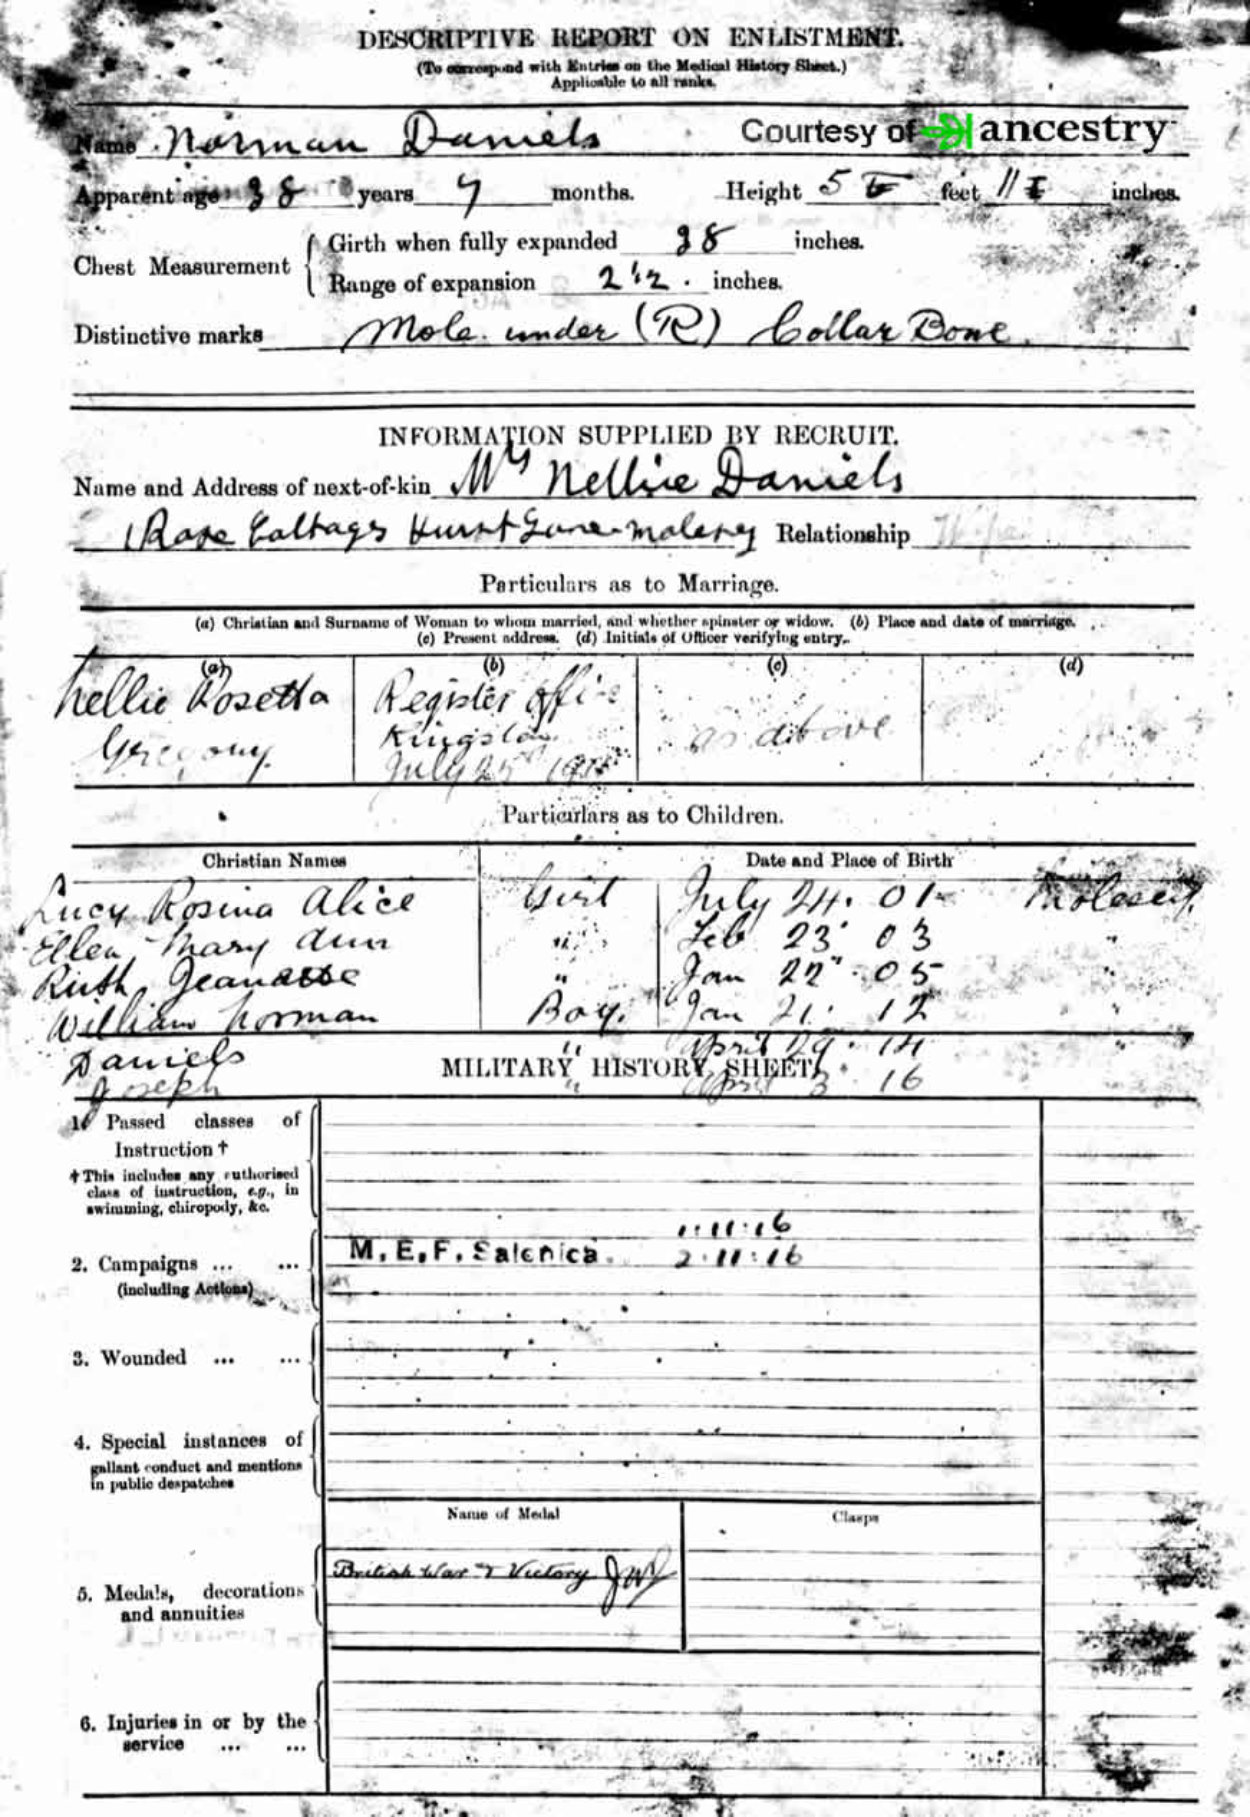 DESCRIPTIVE REPORT ON ENLISTMENT.
(To correspond with Entries on the Medical History Sheet.)
Applicable to all ranks.
Name Norman Daniels
Courtesy of ancestry
Apparent age 38 years 7 months. Height 5 feet 11 inches.
Chest Measurement
Girth when fully expanded 38 inches.
Range of expansion 2½ inches.
Distinctive marks Mole under (R) Collar Bone
INFORMATION SUPPLIED BY RECRUIT.
Name and Address of next-of-kin Mrs Nellie Daniels
1 Rose Cottages Hurst Lane Molesey Relationship Wife
Particulars as to Marriage.
(a) Christian and Surname of Woman to whom married, and whether spinster or widow. (b) Place and date of marriage.
(c) Present address. (d) Initials of Officer verifying entry.
(a) (b) (c) (d)
Nellie Rosetta Register Office
Gregory Kingston as above
July 25
Particulars as to Children.
Christian Names Date and Place of Birth
Lucy Rosina Alice Girl July 24. 01 Molesey
Ellen Mary Ann " Feb 23 03 "
Ruth Jeanette " Jan 22 05 "
William Norman Boy. Jan 21 12 "
Daniels " April 29. 14 "
MILITARY HISTORY SHEET.
Joseph " April 3. 16
1. Passed classes of
Instruction †
† This includes any authorised
class of instruction, e.g., in
swimming, chiropody, &c.
1.11.16
2. Campaigns ... ... M.E.F. Salonica. 2.11.16
(including Actions)
3. Wounded ... ...
4. Special instances of
gallant conduct and mentions
in public despatches
Name of Medal Clasps
British War & Victory
5. Medals, decorations
and annuities
6. Injuries in or by the
service ... ...